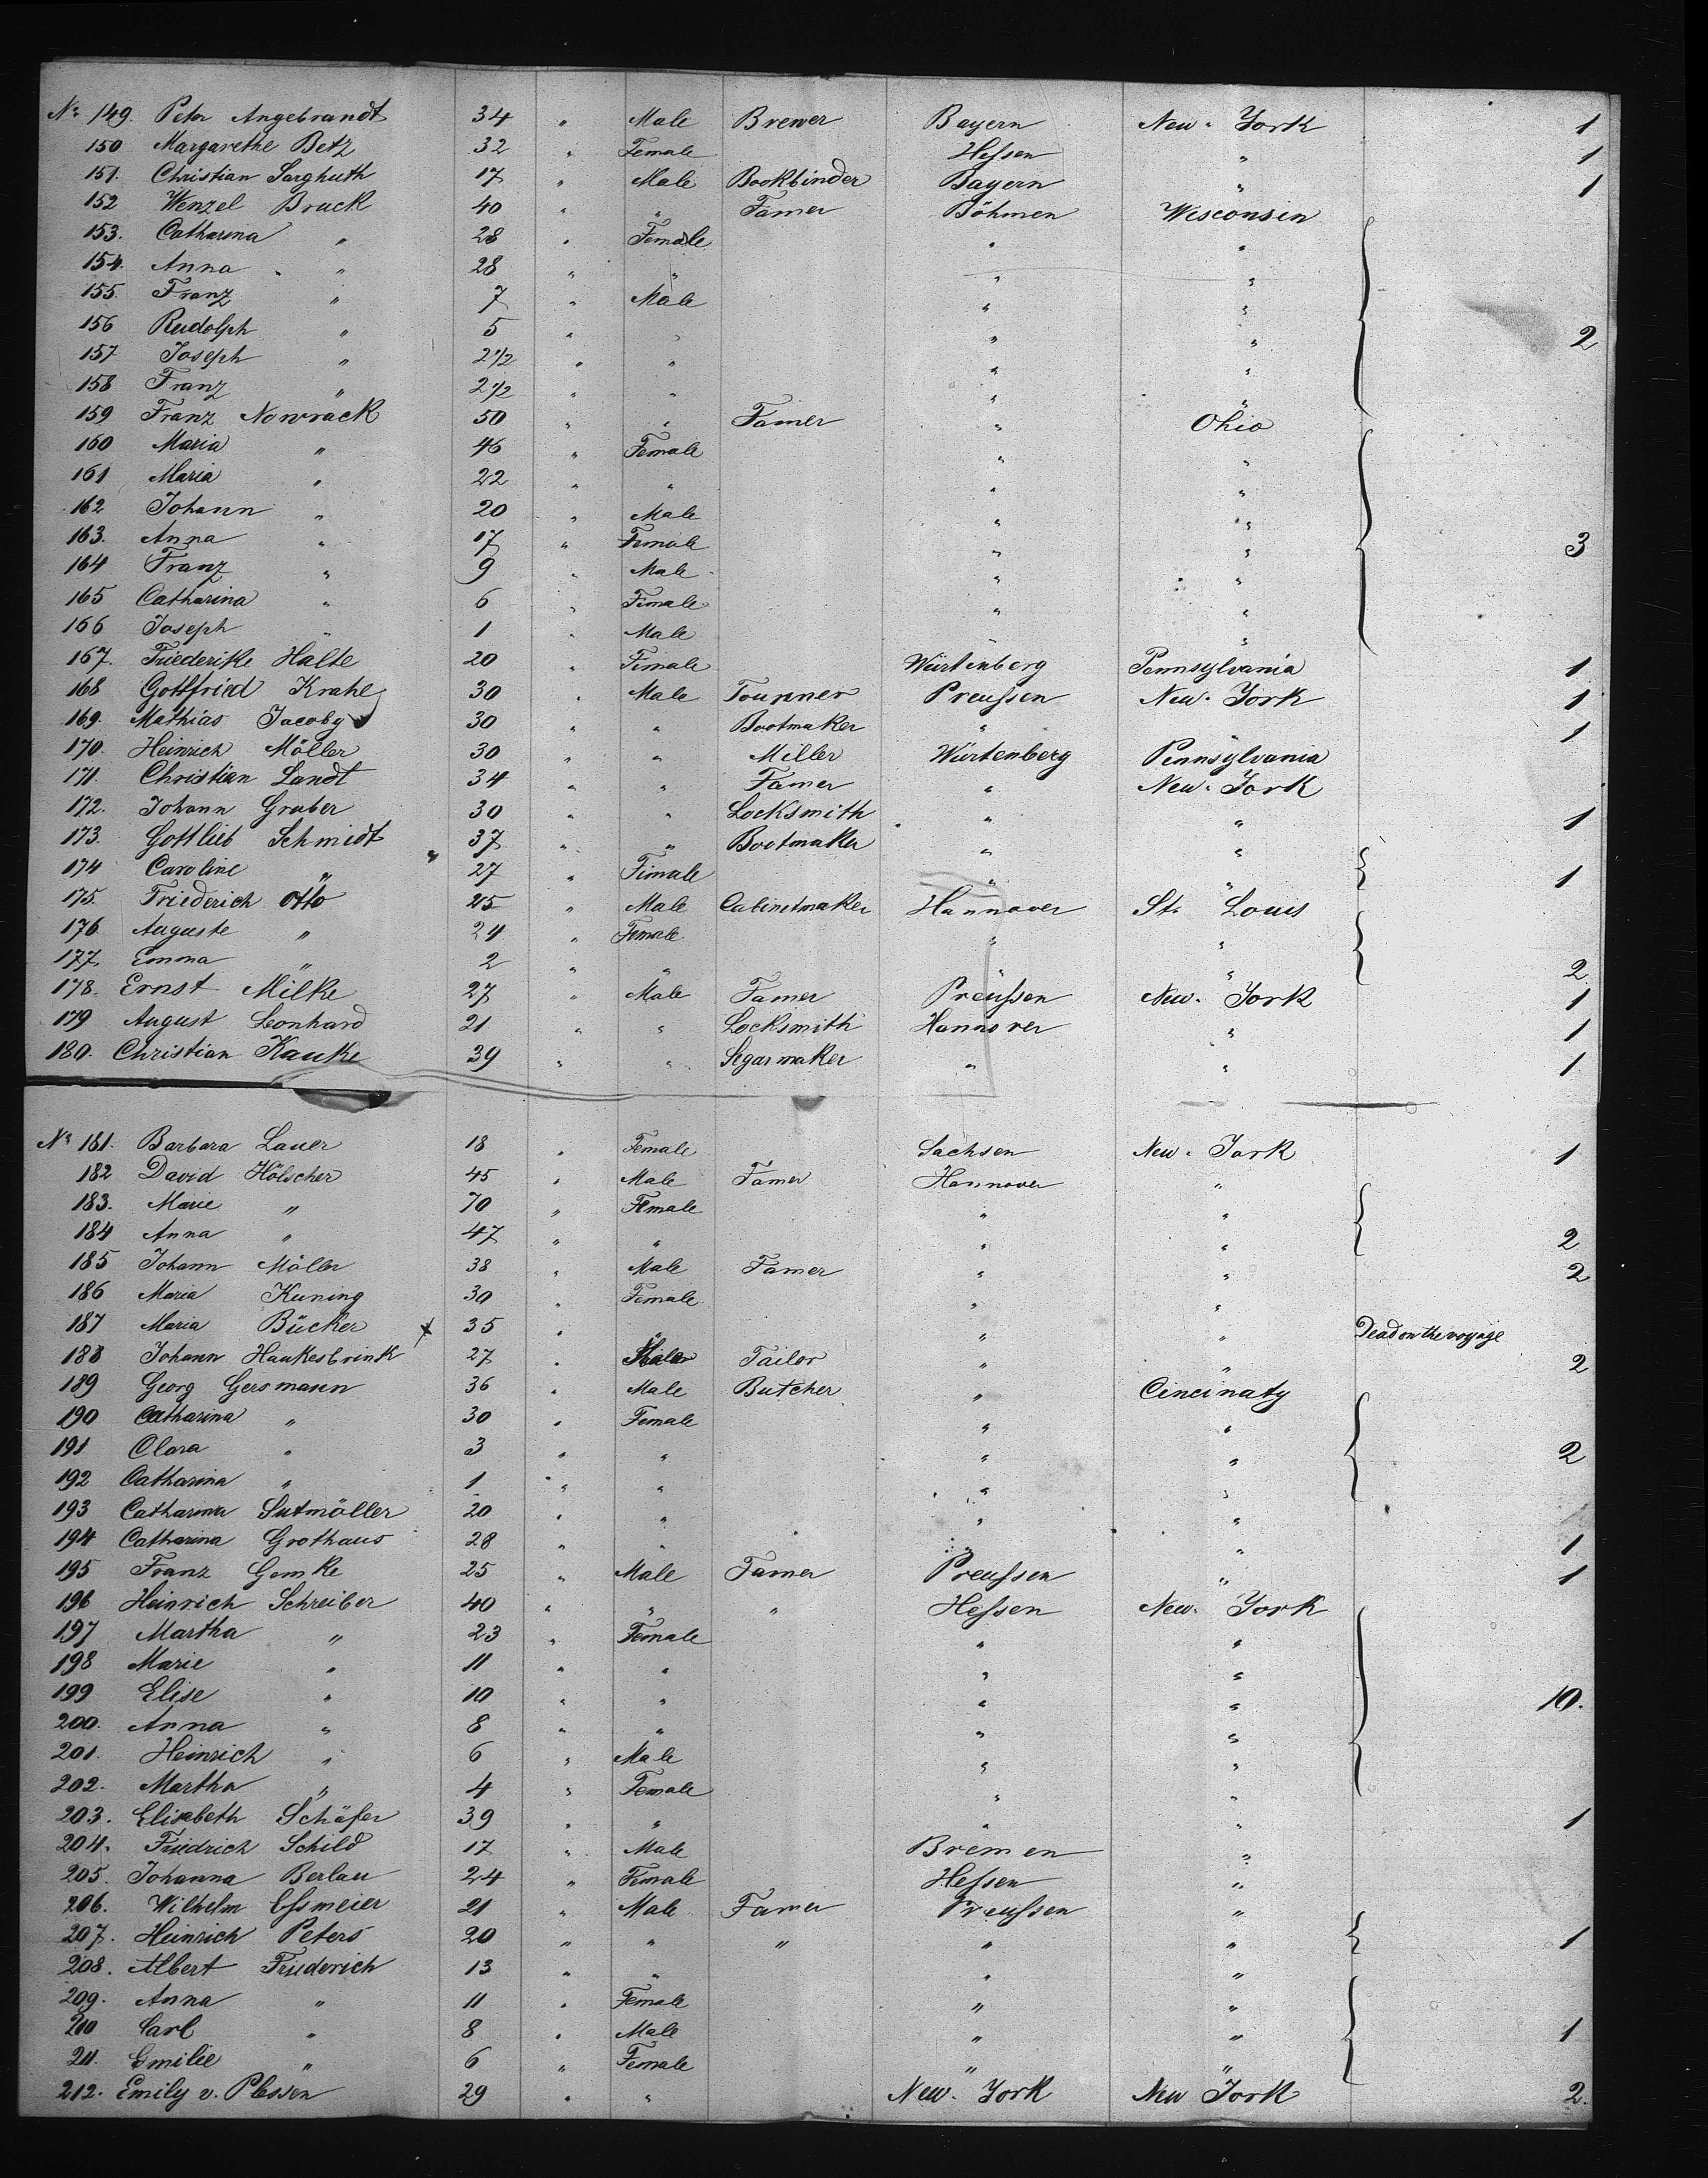 No 149. Peter Angebrandt 34 " Male Brewer Bayern New-York 1
150 Margarethe Betz 32 " Female Hessen " 1
151. Christian Sarghuth 17 " Male Bookbinder Bayern " 1
152 Wenzel Bruck 40 " " Famer Böhmen Wisconsin
153. Catharina " 28 " Female " "
154. Anna " 28 " " " "
155. Franz " 7 " Male " "
156 Rudolph " 5 " " " " 2
157 Joseph " 2 1/2 " " " "
158 Franz " 2 1/2 " " " "
159 Franz Nowrack 50 " " Famer " Ohio
160 Maria " 46 " Female " "
161 Maria " 22 " " " "
162 Johann " 20 " Male " "
163. Anna " 17 " Female " " 3
164 Franz " 9 " Male " "
165 Catharina " 6 " Female " "
166 Joseph " 1 " Male " "
167. Friederike Halte 20 " Female Würtenberg Pennsylvania 1
168 Gottfried Krahe 30 " Male Tourner Preussen New-York 1
169. Mathias Jacoby 30 " " Bootmaker " " 1
170. Heinrich Möller 30 " " Miller Würtenberg Pennsylvania
171. Christian Landt 34 " " Famer " New-York
172. Johann Gruber 30 " " Locksmith " " 1
173. Gottlieb Schmidt 37 " " Bootmaker " "
174 Caroline " 27 " Female " " 1
175. Friederich Otto 25 " Male Cabinetmaker Hannover St. Louis
176 Auguste " 24 " Female " "
177. Emma " 2 " " " " 2
178. Ernst Milke 27 " Male Famer Preussen New-York 1
179 August Leonhard 21 " " Locksmith Hannover " 1
180. Christian Kauke 39 " " Segarmaker " " 1
No 181. Barbara Lauer 18 " Female Sachsen New-York 1
182 David Hölscher 45 " Male Famer Hannover "
183. Marie " 70 " Female " "
184 Anna " 47 " " " " 2
185 Johann Möller 38 " Male Famer " " 2
186 Maria Kuning 30 " Female " "
187 Maria Bücker 35 " " " " Dead on the voyage
188 Johann Haukesbrink 27 " Tailor " " 2
189 Georg Gersmann 36 " Male Butcher " Cincinaty
190 Catharina " 30 " Female " "
191 Clara " 3 " " " " 2
192 Catharina " 1 " " " "
193 Catharina Sutmöller 20 " " " "
194 Catharina Grothaus 28 " " " " 1
195 Franz Gemke 25 " Male Famer Preussen " 1
196 Heinrich Schreiber 40 " " " Hessen New-York
197 Martha " 23 " Female " "
198 Marie " 11 " " " "
199 Elise " 10 " " " " 10.
200. Anna " 8 " " " "
201. Heinrich " 6 " Male " "
202. Martha " 4 " Female " "
203. Elisabeth Schäfer 39 " " " " 1
204. Friedrich Schild 17 " Male Bremen "
205. Johanna Berlau 24 " Female Hessen "
206. Wilhelm Essmeier 21 " Male Famer Preussen "
207. Heinrich Peters 20 " " " " " 1
208. Albert Friederich 13 " " " "
209. Anna " 11 " Female " "
210 Carl " 8 " Male " " 1
211. Emilie " 6 " Female " "
212. Emily v. Plessen 29 " " New-York New York 2.